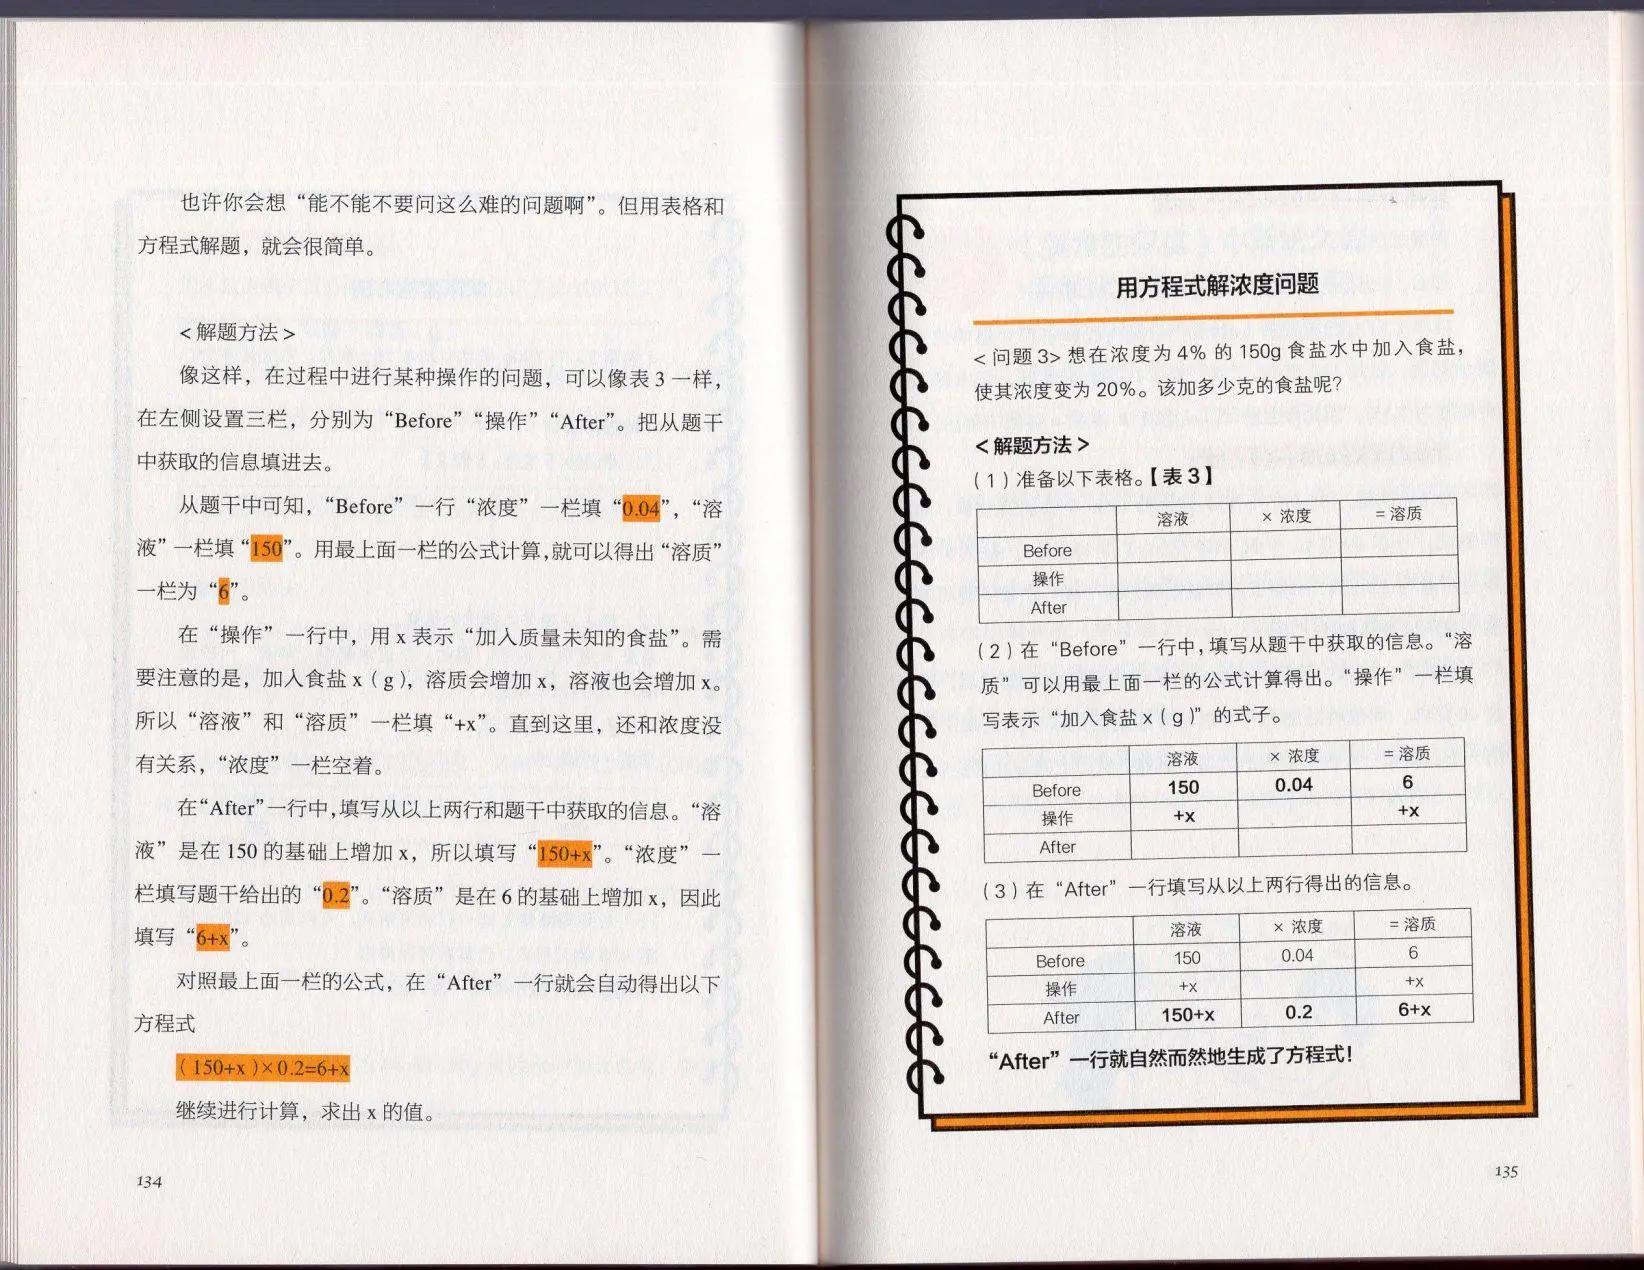 也许你会想“能不能不要问这么难的问题啊”。但用表格和
方程式解题，就会很简单。
<解题方法>
像这样，在过程中进行某种操作的问题，可以像表 3 一样，
在左侧设置三栏，分别为“Before”“操作”“After”。把从题干
中获取的信息填进去。
从题干中可知，“Before”一行“浓度”一栏填“0.04”，“溶
液”一栏填“150”。用最上面一栏的公式计算,就可以得出“溶质”
一栏为“6”。
在“操作”一行中，用 x 表示“加入质量未知的食盐”。需
要注意的是，加入食盐 x（g），溶质会增加 x，溶液也会增加 x。
所以“溶液”和“溶质”一栏填“+x”。直到这里，还和浓度没
有关系，“浓度”一栏空着。
在“After”一行中,填写从以上两行和题干中获取的信息。“溶
液”是在 150 的基础上增加 x，所以填写“150+x”。“浓度”一
栏填写题干给出的“0.2”。“溶质”是在 6 的基础上增加 x，因此
填写“6+x”。
对照最上面一栏的公式，在“After”一行就会自动得出以下
方程式
（150+x）×0.2=6+x
继续进行计算，求出 x 的值。
134
用方程式解浓度问题
<问题 3> 想在浓度为 4% 的 150g 食盐水中加入食盐，
使其浓度变为 20%。该加多少克的食盐呢?
<解题方法>
（1）准备以下表格。【表 3】
溶液 × 浓度 = 溶质
Before
操作
After
（2）在“Before”一行中，填写从题干中获取的信息。“溶
质”可以用最上面一栏的公式计算得出。“操作”一栏填
写表示“加入食盐 x（g）”的式子。
溶液 × 浓度 = 溶质
Before 150 0.04 6
操作 +x +x
After
（3）在“After”一行填写从以上两行得出的信息。
溶液 × 浓度 = 溶质
Before 150 0.04 6
操作 +x +x
After 150+x 0.2 6+x
“After”一行就自然而然地生成了方程式！
135